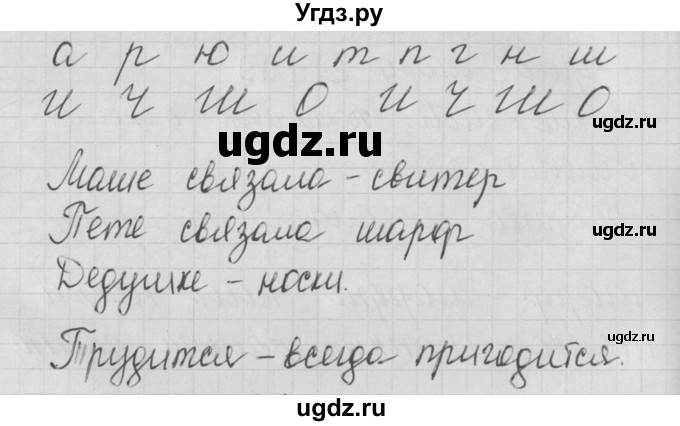 Угдз.ру
а р ю и т п г н ш
И Ч Ш О И Ч Ш О
ugdz.ru
ugdz.ru
Маше связала - свитер
Пете связала шарф
ugdz.ru
Дедушке - носки.
ugdz.ru
Трудится - всегда пригодится.
ugdz.ru